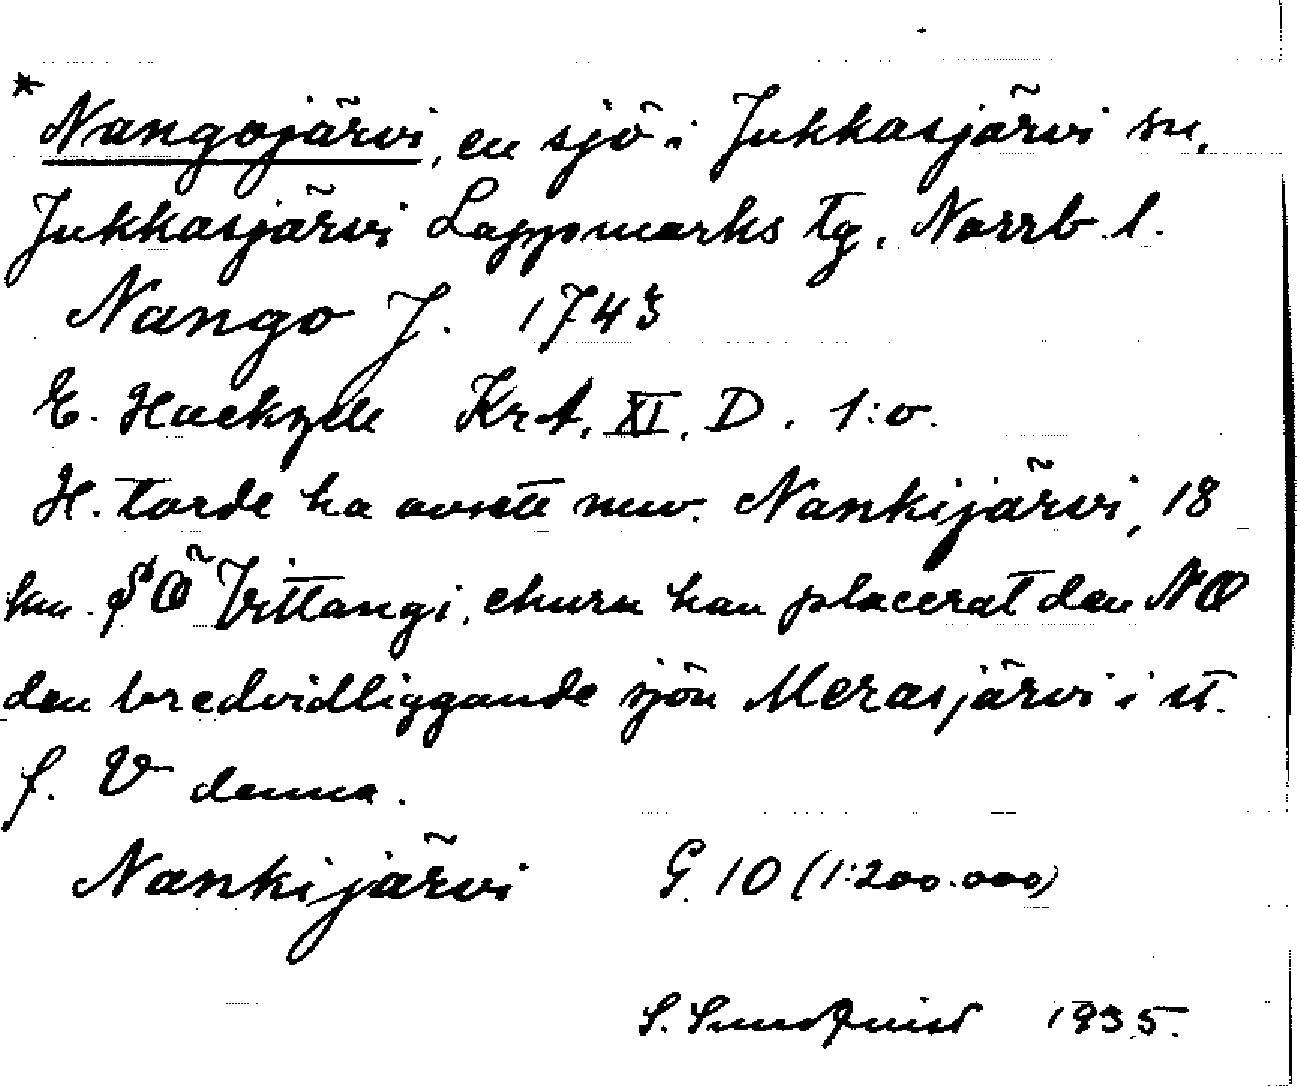 * Nangojärvi, en sjö i Jukkasjärvi sn,
Jukkasjärvi Lappmarks tg, Norrb. l.
Nango J. 1743
E. Hackzell KrA, XI, D. 1:o.
H. torde ha avsett nuv. Nankijärvi, 18
km. SÖ Vittangi, ehuru han placerat den NO
den bredvidliggande sjön Merasjärvi i st.
f. V denna.
Nankijärvi G. 10 (1:200.000)
S. Sundquist 1935.